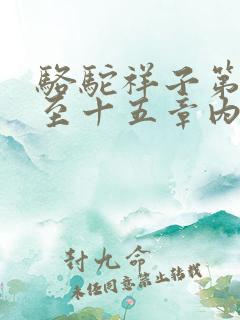 駱駝祥子第
至十五章內
封九命
未經同意禁止轉載